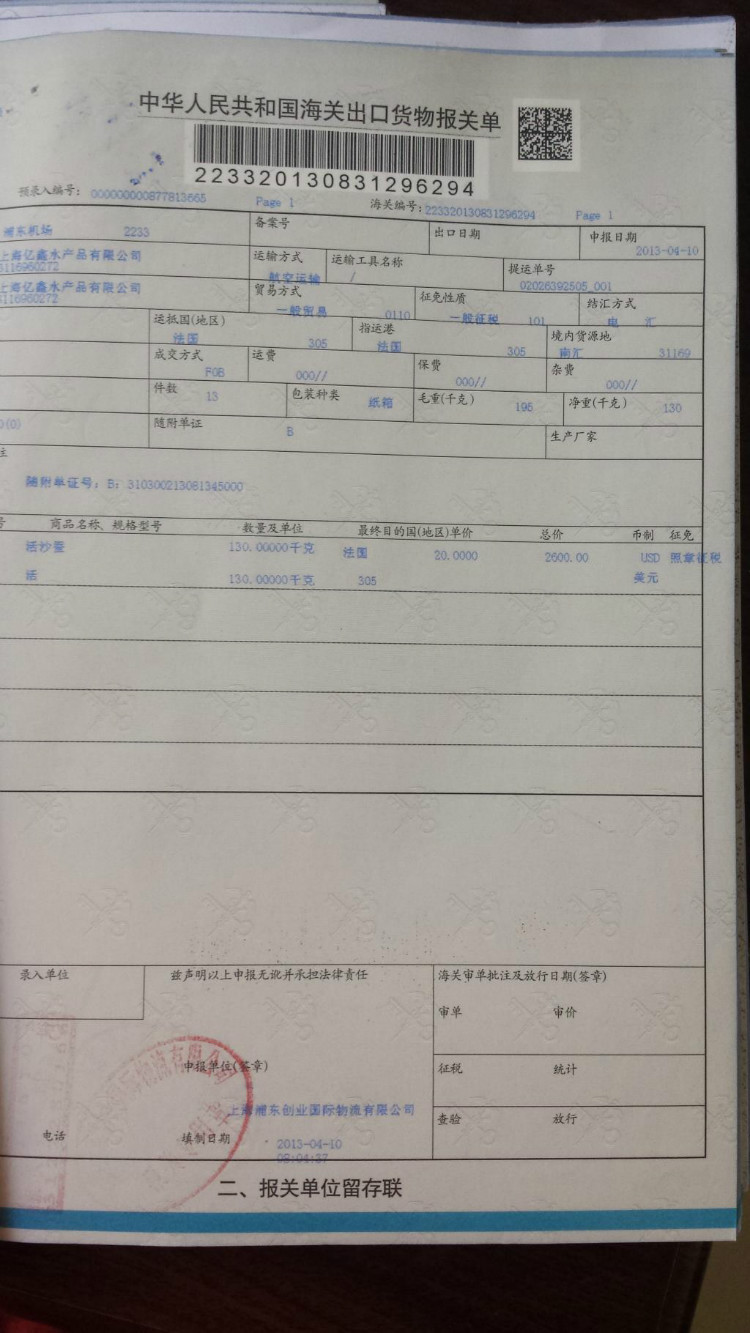 中华人民共和国海关出口货物报关单
223320130831296294
预录入编号: 000000000877813665 Page 1 海关编号: 223320130831296294 Page 1
浦东机场 2233 备案号 出口日期 申报日期
2013-04-10
上海亿鑫水产品有限公司 运输方式 运输工具名称 提运单号
3116960272 航空运输 / 02026392505_001
上海亿鑫水产品有限公司 贸易方式 征免性质 结汇方式
3116960272 一般贸易 0110 一般征税 101 电 汇
运抵国(地区) 指运港 境内货源地
法国 305 法国 305 南汇 31169
成交方式 运费 保费 杂费
FOB 000// 000// 000//
件数 包装种类 毛重(千克) 净重(千克)
13 纸箱 195 130
0(0) 随附单证 B 生产厂家
注
随附单证号: B: 310300213081345000
号 商品名称、规格型号 数量及单位 最终目的国(地区)单价 总价 币制 征免
活沙蚕 130.00000千克 法国 20.0000 2600.00 USD 照章征税
活 130.00000千克 305 美元
录入单位 兹声明以上申报无讹并承担法律责任 海关审单批注及放行日期(签章)
审单 审价
申报单位(签章) 征税 统计
上海浦东创业国际物流有限公司
查验 放行
电话 填制日期 2013-04-10
08:04:37
二、报关单位留存联